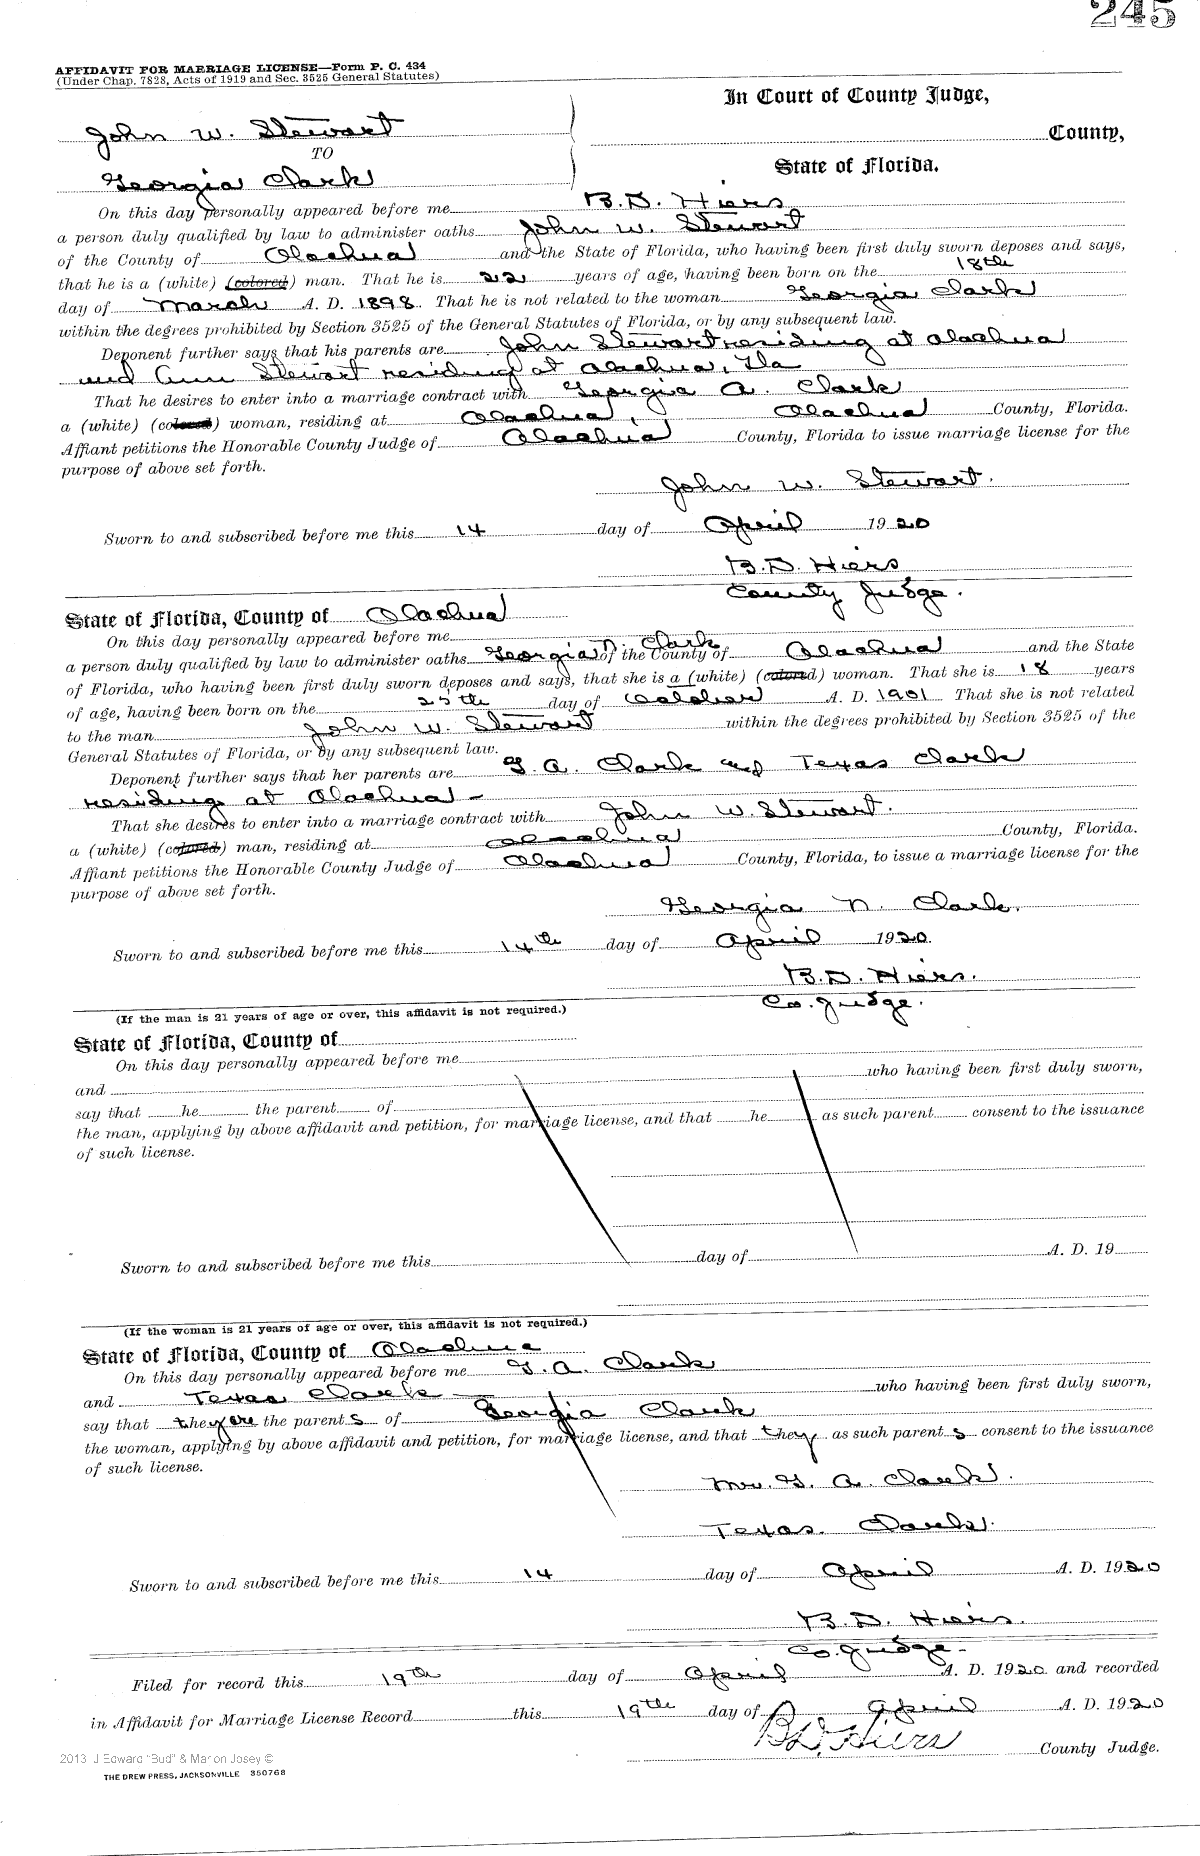 245
AFFIDAVIT FOR MARRIAGE LICENSE—Form P. C. 434
(Under Chap. 7828, Acts of 1919 and Sec. 3525 General Statutes)
In Court of County Judge,
John W. Stewart
County,
TO
State of Florida.
Georgia Clark
On this day personally appeared before me B.D. Hiers
a person duly qualified by law to administer oaths John W. Stewart
of the County of Alachua and the State of Florida, who having been first duly sworn deposes and says,
that he is a (white) (colored) man. That he is 22 years of age, having been born on the 18th
day of March A. D. 1898. That he is not related to the woman Georgia Clark
within the degrees prohibited by Section 3525 of the General Statutes of Florida, or by any subsequent law.
Deponent further says that his parents are John Stewart residing at Alachua
and Ann Stewart residing at Alachua, Fla
That he desires to enter into a marriage contract with Georgia A. Clark
a (white) (colored) woman, residing at Alachua, Alachua County, Florida.
Affiant petitions the Honorable County Judge of Alachua County, Florida to issue marriage license for the
purpose of above set forth.
John W. Stewart.
Sworn to and subscribed before me this 14 day of April 1920
B.D. Hiers
County Judge.
State of Florida, County of Alachua
On this day personally appeared before me
a person duly qualified by law to administer oaths Georgia N. Clark of the County of Alachua and the State
of Florida, who having been first duly sworn deposes and says, that she is a (white) (colored) woman. That she is 18 years
of age, having been born on the 25th day of October A. D. 1901 That she is not related
to the man John W. Stewart within the degrees prohibited by Section 3525 of the
General Statutes of Florida, or by any subsequent law.
Deponent further says that her parents are G. A. Clark and Texas Clark
residing at Alachua —
That she desires to enter into a marriage contract with John W. Stewart.
a (white) (colored) man, residing at Alachua County, Florida.
Affiant petitions the Honorable County Judge of Alachua County, Florida, to issue a marriage license for the
purpose of above set forth.
Georgia N. Clark.
Sworn to and subscribed before me this 14th day of April 1920.
B.D. Hiers.
Co. Judge.
(If the man is 21 years of age or over, this affidavit is not required.)
State of Florida, County of
On this day personally appeared before me
and who having been first duly sworn,
say that he the parent of
the man, applying by above affidavit and petition, for marriage license, and that he as such parent consent to the issuance
of such license.
Sworn to and subscribed before me this day of A. D. 19
(If the woman is 21 years of age or over, this affidavit is not required.)
State of Florida, County of Alachua
On this day personally appeared before me G. A. Clark
and Texas Clark — who having been first duly sworn,
say that they are the parents of Georgia Clark
the woman, applying by above affidavit and petition, for marriage license, and that they as such parents consent to the issuance
of such license.
Mr. G. A. Clark.
Texas Clark.
Sworn to and subscribed before me this 14 day of April A. D. 1920
B. D. Hiers.
Co. Judge.
Filed for record this 19th day of April A. D. 1920 and recorded
in Affidavit for Marriage License Record this 19th day of April A. D. 1920
B.D. Hiers County Judge.
2013 J Edward "Bud" & Marion Josey ©
THE DREW PRESS, JACKSONVILLE 350768